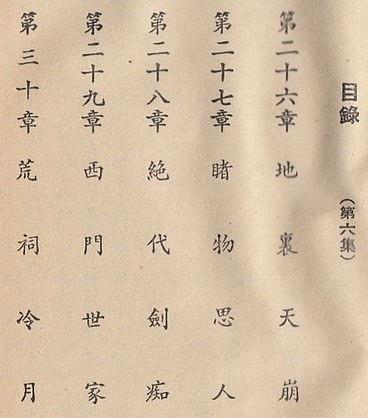 目錄（第六集）
第二十六章 地裏天崩
第二十七章 睹物思人
第二十八章 絕代劍痴
第二十九章 西門世家
第三十章 荒祠冷月